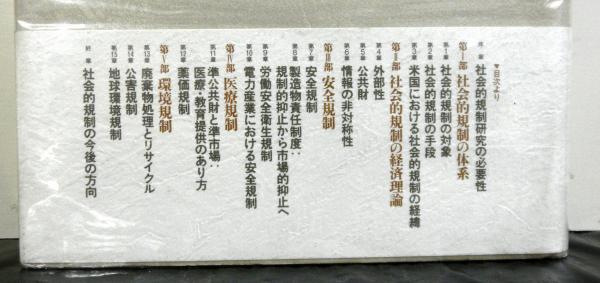 ▼目次より
序章 社会的規制研究の必要性
第Ⅰ部 社会的規制の体系
第1章 社会的規制の対象
第2章 社会的規制の手段
第3章 米国における社会的規制の経緯
第Ⅱ部 社会的規制の経済理論
第4章 外部性
第5章 公共財
第6章 情報の非対称性
第Ⅲ部 安全規制
第7章 安全規制
第8章 製造物責任制度:
規制的抑止から市場的抑止へ
第9章 労働安全衛生規制
第10章 電力産業における安全規制
第Ⅳ部 医療規制
第11章 準公共財と準市場:
医療・教育提供のあり方
第12章 薬価規制
第Ⅴ部 環境規制
第13章 廃棄物処理とリサイクル
第14章 公害規制
第15章 地球環境規制
終章 社会的規制の今後の方向